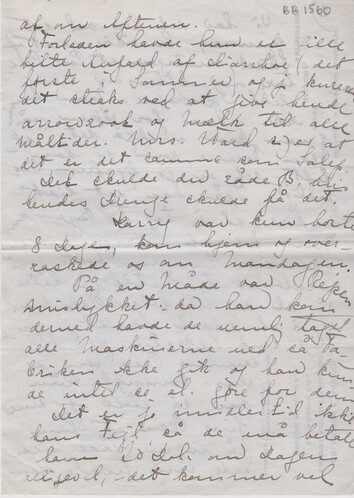 BB 1560
af om Aftenen.
Forleden havde hun et lille
bitte Anfald af Diarrhoe (det
første i Sommer) og jeg kurerede
det straks ved at give hende
arrowroot og Mælk til alle
Måltider. Mrs. Ward siger at
det er det samme som Salep.
Det skulde du råde B. hvis
hendes Drenge skulde få det.
Harry var kun borte
8 Dage, kom hjem og over-
raskede os om Mandagen.
På en Måde var Rejsen
mislykket. da han kom
derned havde de nemlig taget
alle Maskinerne ned så Fa
briken ikke gik og han kunde
intet se el. gøre for dem
Det er jo imidlertid ikke
hans Fejl, så de må betale
ham 20 Dol. om Dagen
alligevel, - det kommer vel